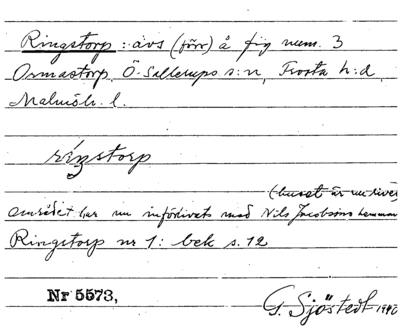 Ringstorp: ävs (förr) å fig num. 3
Ormastorp, Ö. Sallerups s:n, Frosta h:d,
Malmöh. l.
ríŋstorp
(huset är nu rivet)
området har nu införlivats med Nils Jacobsons hemman
Ringstorp nr 1: bek s. 12
Nr 5573,
G. Sjöstedt 1940